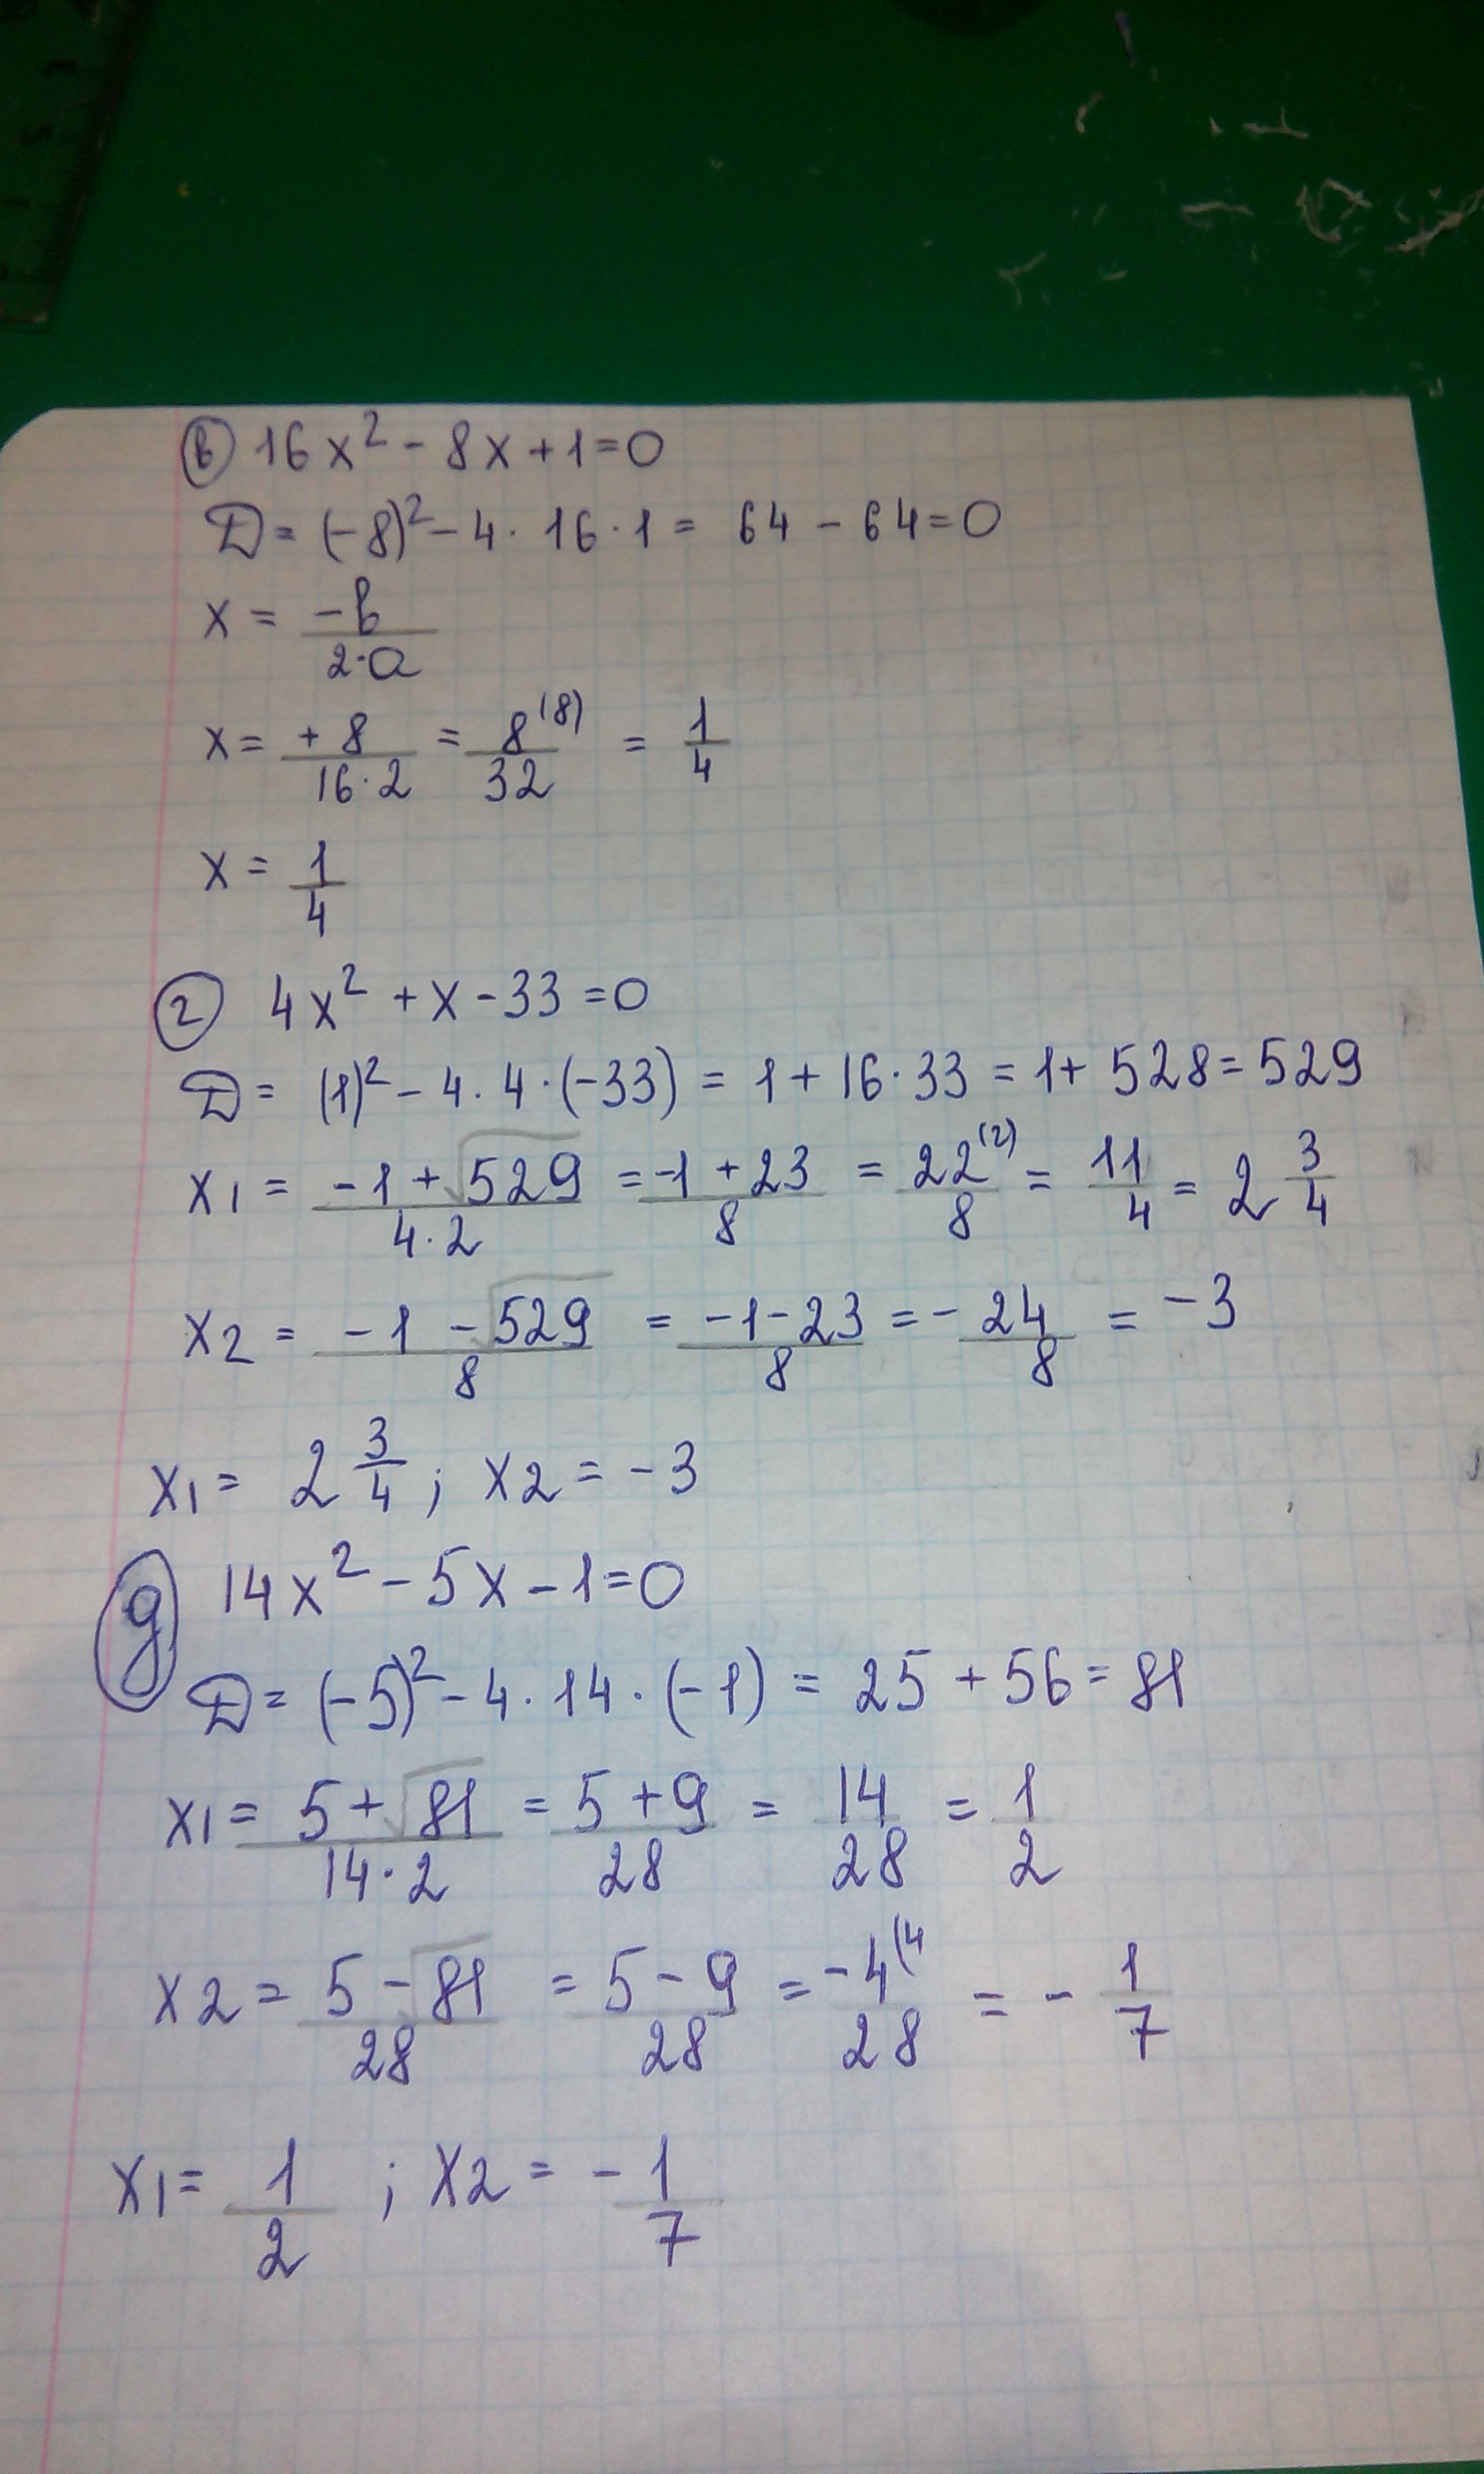 в) 16x² - 8x + 1 = 0
D = (-8)² - 4 · 16 · 1 = 64 - 64 = 0
x = -b / 2·a
x = +8 / 16·2 = 8⁽⁸⁾ / 32 = 1/4
x = 1/4
г) 4x² + x - 33 = 0
D = (1)² - 4 · 4 · (-33) = 1 + 16 · 33 = 1 + 528 = 529
x1 = -1 + √529 / 4·2 = -1 + 23 / 8 = 22⁽²⁾ / 8 = 11/4 = 2 3/4
x2 = -1 - √529 / 8 = -1 - 23 / 8 = - 24/8 = -3
x1 = 2 3/4 ; x2 = -3
g) 14x² - 5x - 1 = 0
D = (-5)² - 4 · 14 · (-1) = 25 + 56 = 81
x1 = 5 + √81 / 14·2 = 5 + 9 / 28 = 14/28 = 1/2
x2 = 5 - √81 / 28 = 5 - 9 / 28 = -4⁽⁴ / 28 = - 1/7
x1 = 1/2 ; x2 = - 1/7